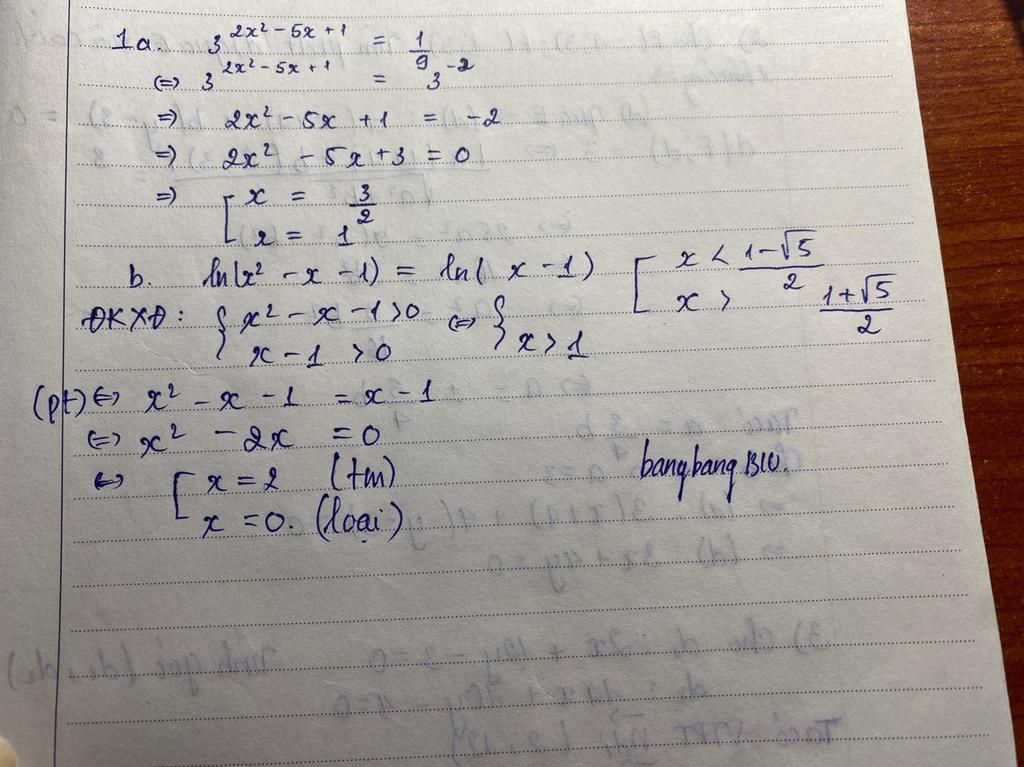 1a. 3^{2x² - 5x + 1} = 1/9
⇔ 3^{2x² - 5x + 1} = 3^{-2}
⇒ 2x² - 5x + 1 = -2
⇒ 2x² - 5x + 3 = 0
⇒ [ x = 3/2
x = 1
b. ln(x² - x - 1) = ln(x - 1)
ĐKXĐ: { x² - x - 1 > 0 ⇔ { [ x < (1-√5)/2
x > (1+√5)/2
x - 1 > 0 x > 1
(pt) ⇔ x² - x - 1 = x - 1
⇔ x² - 2x = 0
⇔ [ x = 2 (tm)
x = 0. (loại)
bangbang BIU.